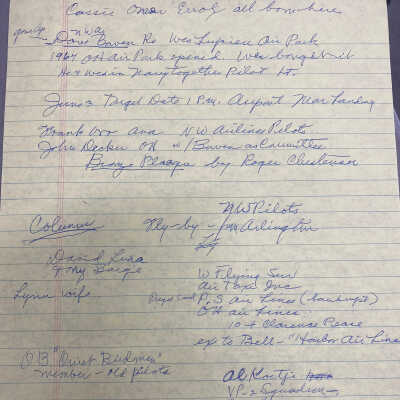 Cassie Omar Errol all born here
n Way
Dave Baven Re Wes Lupien Air Park
1967 OH air Park opened Wes bought it
He & Wes in Navy together Pilot Lt.
June 3 Target Date 1 P.M. Airport
Frank Ana N.W. Airlines Pilots
John Decker OH w/ Baven as Committee
Bronze Plaque by Roger Christensen
NW Pilots
Columns Fly-by - from Arlington
David
Tony
Lynn wife
W Flying Sun
Air Taxi Inc
P.S air Lines (bankrupt)
OH air Lines
10-4 Clarence Pease
ex to Bell - "Harbor Air Lines
OB "Quiet Birdmen"
member - old pilots
Al
VP-2 Squadron